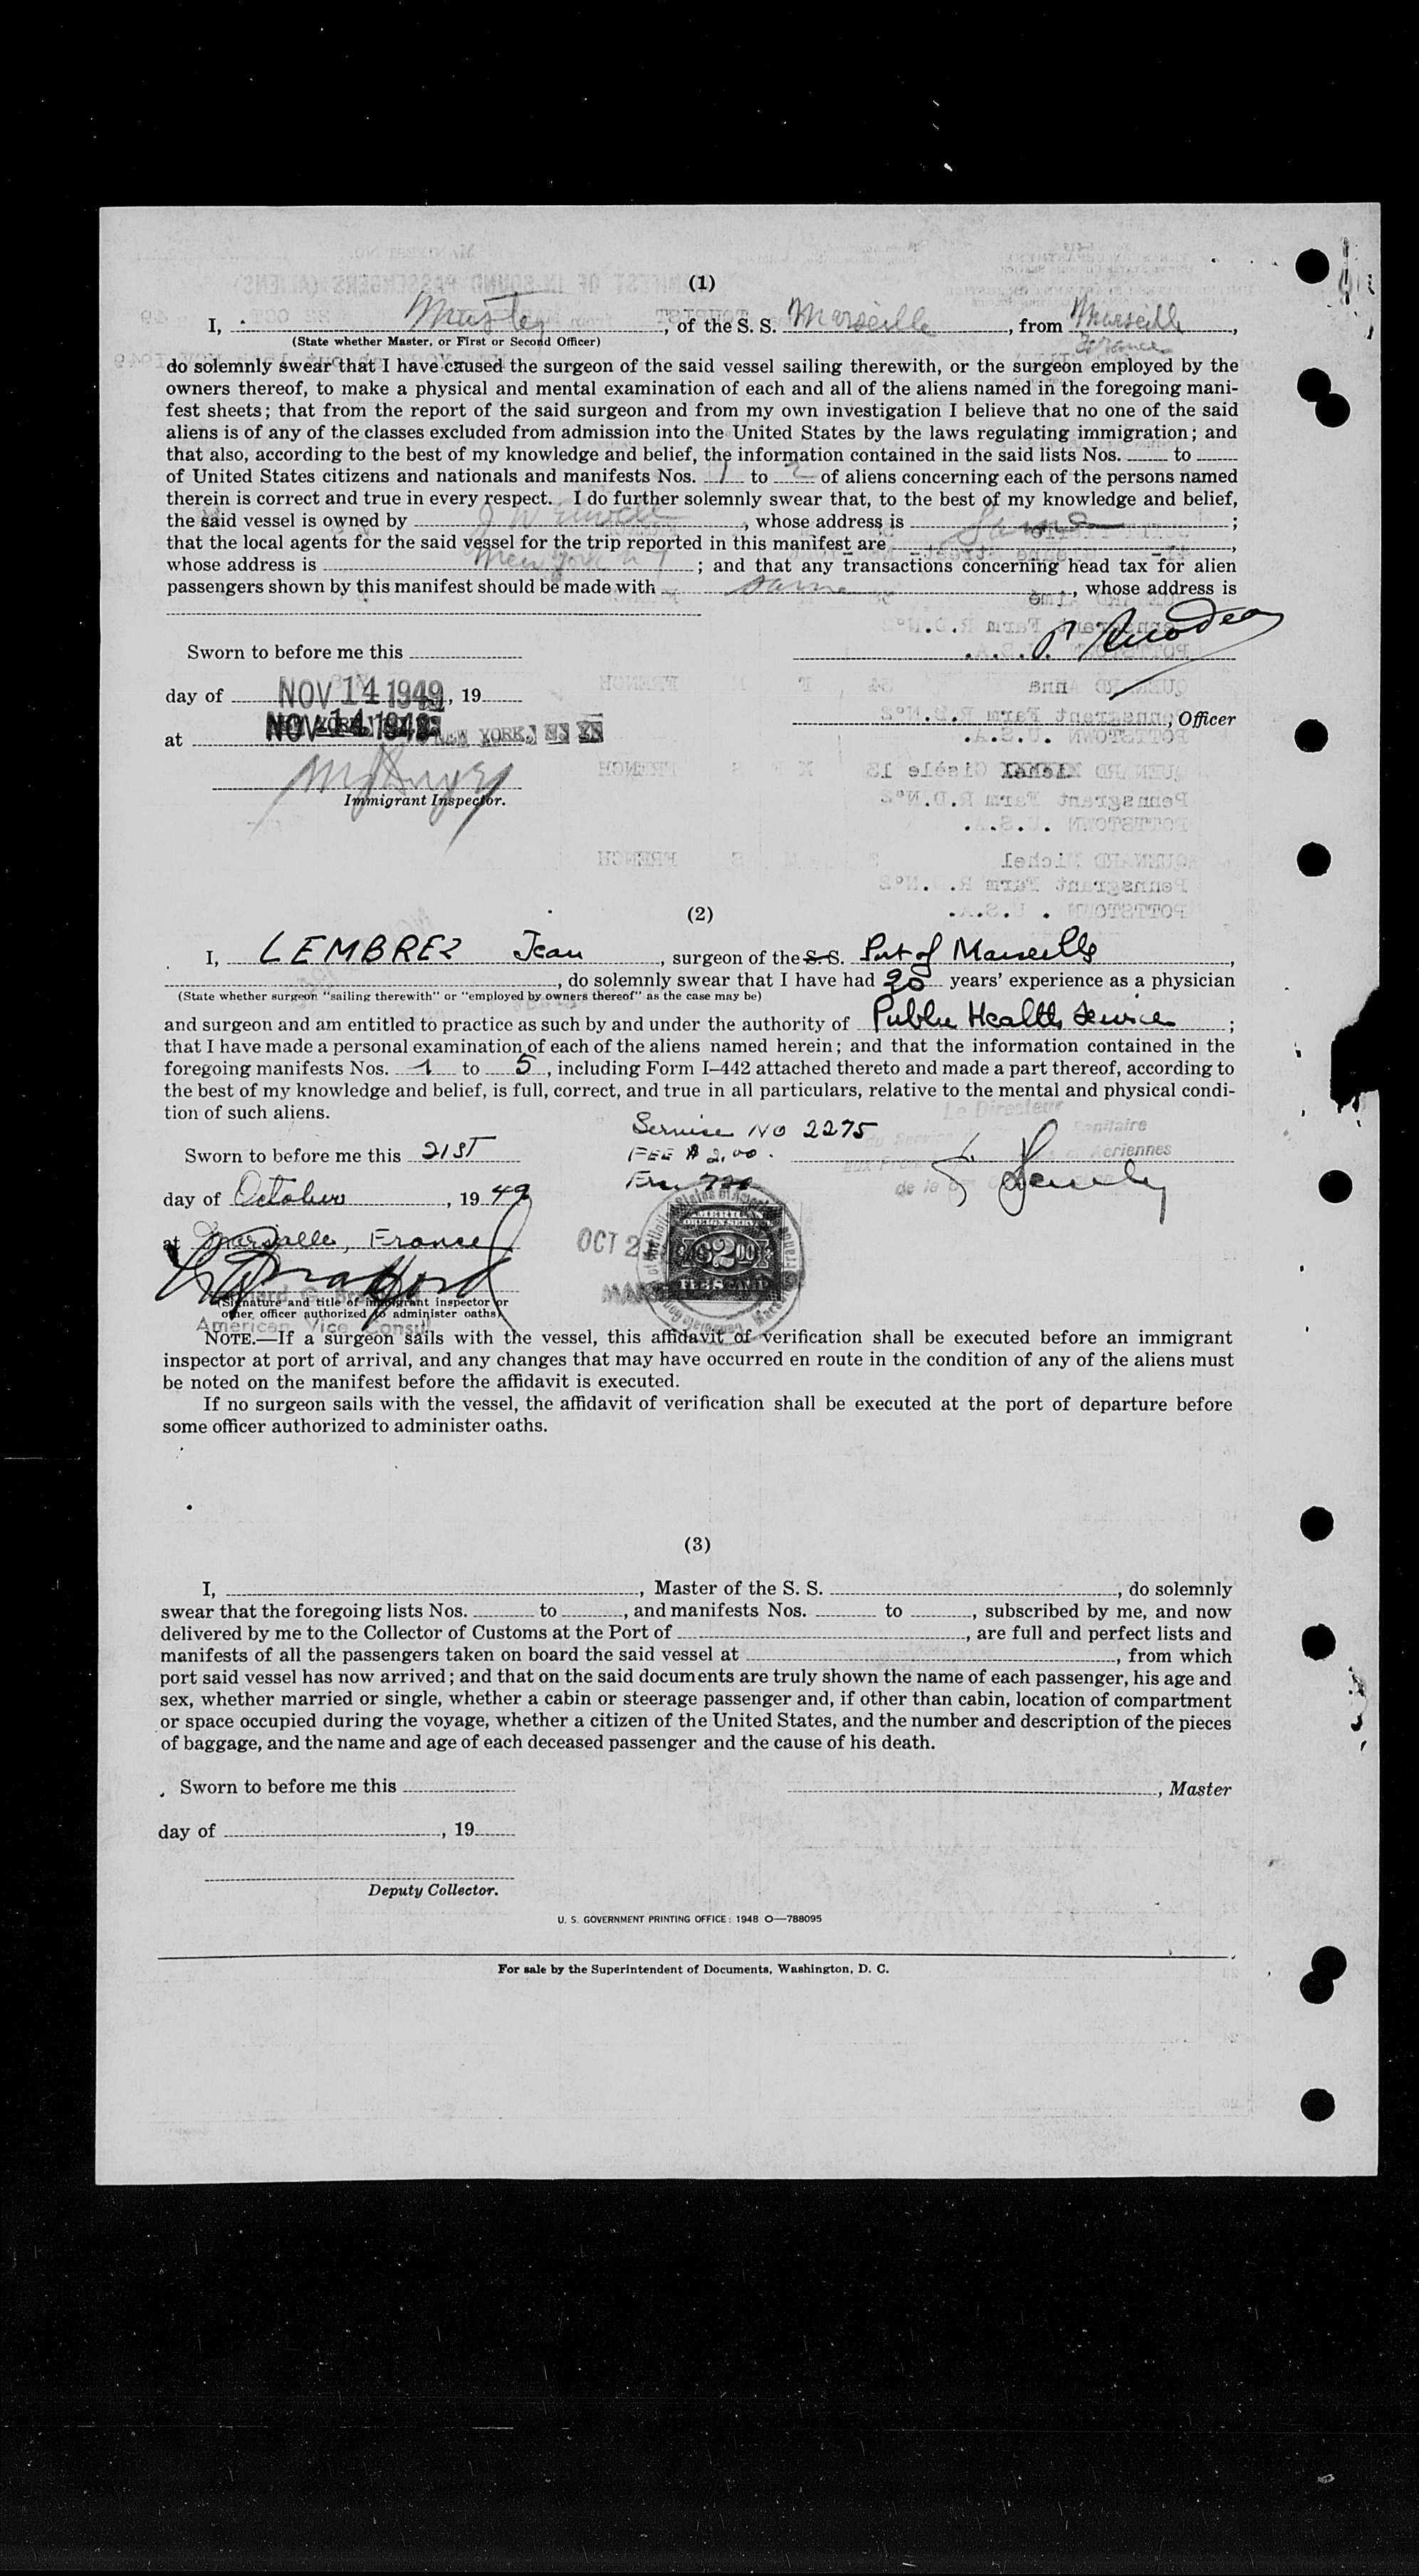 (1)
I, Master, of the S. S. Marseille, from Marseille
France,
(State whether Master, or First or Second Officer)
do solemnly swear that I have caused the surgeon of the said vessel sailing therewith, or the surgeon employed by the
owners thereof, to make a physical and mental examination of each and all of the aliens named in the foregoing mani-
fest sheets; that from the report of the said surgeon and from my own investigation I believe that no one of the said
aliens is of any of the classes excluded from admission into the United States by the laws regulating immigration; and
that also, according to the best of my knowledge and belief, the information contained in the said lists Nos. to
of United States citizens and nationals and manifests Nos. 1 to 2 of aliens concerning each of the persons named
therein is correct and true in every respect. I do further solemnly swear that, to the best of my knowledge and belief,
the said vessel is owned by J W Elwell, whose address is Same;
that the local agents for the said vessel for the trip reported in this manifest are ,
whose address is New York N Y; and that any transactions concerning head tax for alien
passengers shown by this manifest should be made with same, whose address is
Sworn to before me this
day of NOV 14 1949, 19
, Officer
at NOV 14 1949 NEW YORK, N. Y.
Immigrant Inspector.
(2)
I, LEMBREZ Jean, surgeon of the S. S. Port of Marseille,
, do solemnly swear that I have had 20 years' experience as a physician
(State whether surgeon "sailing therewith" or "employed by owners thereof" as the case may be)
and surgeon and am entitled to practice as such by and under the authority of Public Health Service;
that I have made a personal examination of each of the aliens named herein; and that the information contained in the
foregoing manifests Nos. 1 to 5, including Form I-442 attached thereto and made a part thereof, according to
the best of my knowledge and belief, is full, correct, and true in all particulars, relative to the mental and physical condi-
tion of such aliens.
Le Directeur
Service No 2275
du Service Sanitaire
Sworn to before me this 21ST
FEE $ 2.00.
Aériennes
de la
day of October, 1949
AMERICAN
FOREIGN SERVICE
$2.00
FEE STAMP
OCT 2
at Marseille, France
(Signature and title of immigrant inspector or
other officer authorized to administer oaths)
American Vice Consul
NOTE.—If a surgeon sails with the vessel, this affidavit of verification shall be executed before an immigrant
inspector at port of arrival, and any changes that may have occurred en route in the condition of any of the aliens must
be noted on the manifest before the affidavit is executed.
If no surgeon sails with the vessel, the affidavit of verification shall be executed at the port of departure before
some officer authorized to administer oaths.
(3)
I, , Master of the S. S. , do solemnly
swear that the foregoing lists Nos. to , and manifests Nos. to , subscribed by me, and now
delivered by me to the Collector of Customs at the Port of , are full and perfect lists and
manifests of all the passengers taken on board the said vessel at , from which
port said vessel has now arrived; and that on the said documents are truly shown the name of each passenger, his age and
sex, whether married or single, whether a cabin or steerage passenger and, if other than cabin, location of compartment
or space occupied during the voyage, whether a citizen of the United States, and the number and description of the pieces
of baggage, and the name and age of each deceased passenger and the cause of his death.
Sworn to before me this
, Master
day of , 19
Deputy Collector.
U. S. GOVERNMENT PRINTING OFFICE: 1948 O—788095
For sale by the Superintendent of Documents, Washington, D. C.